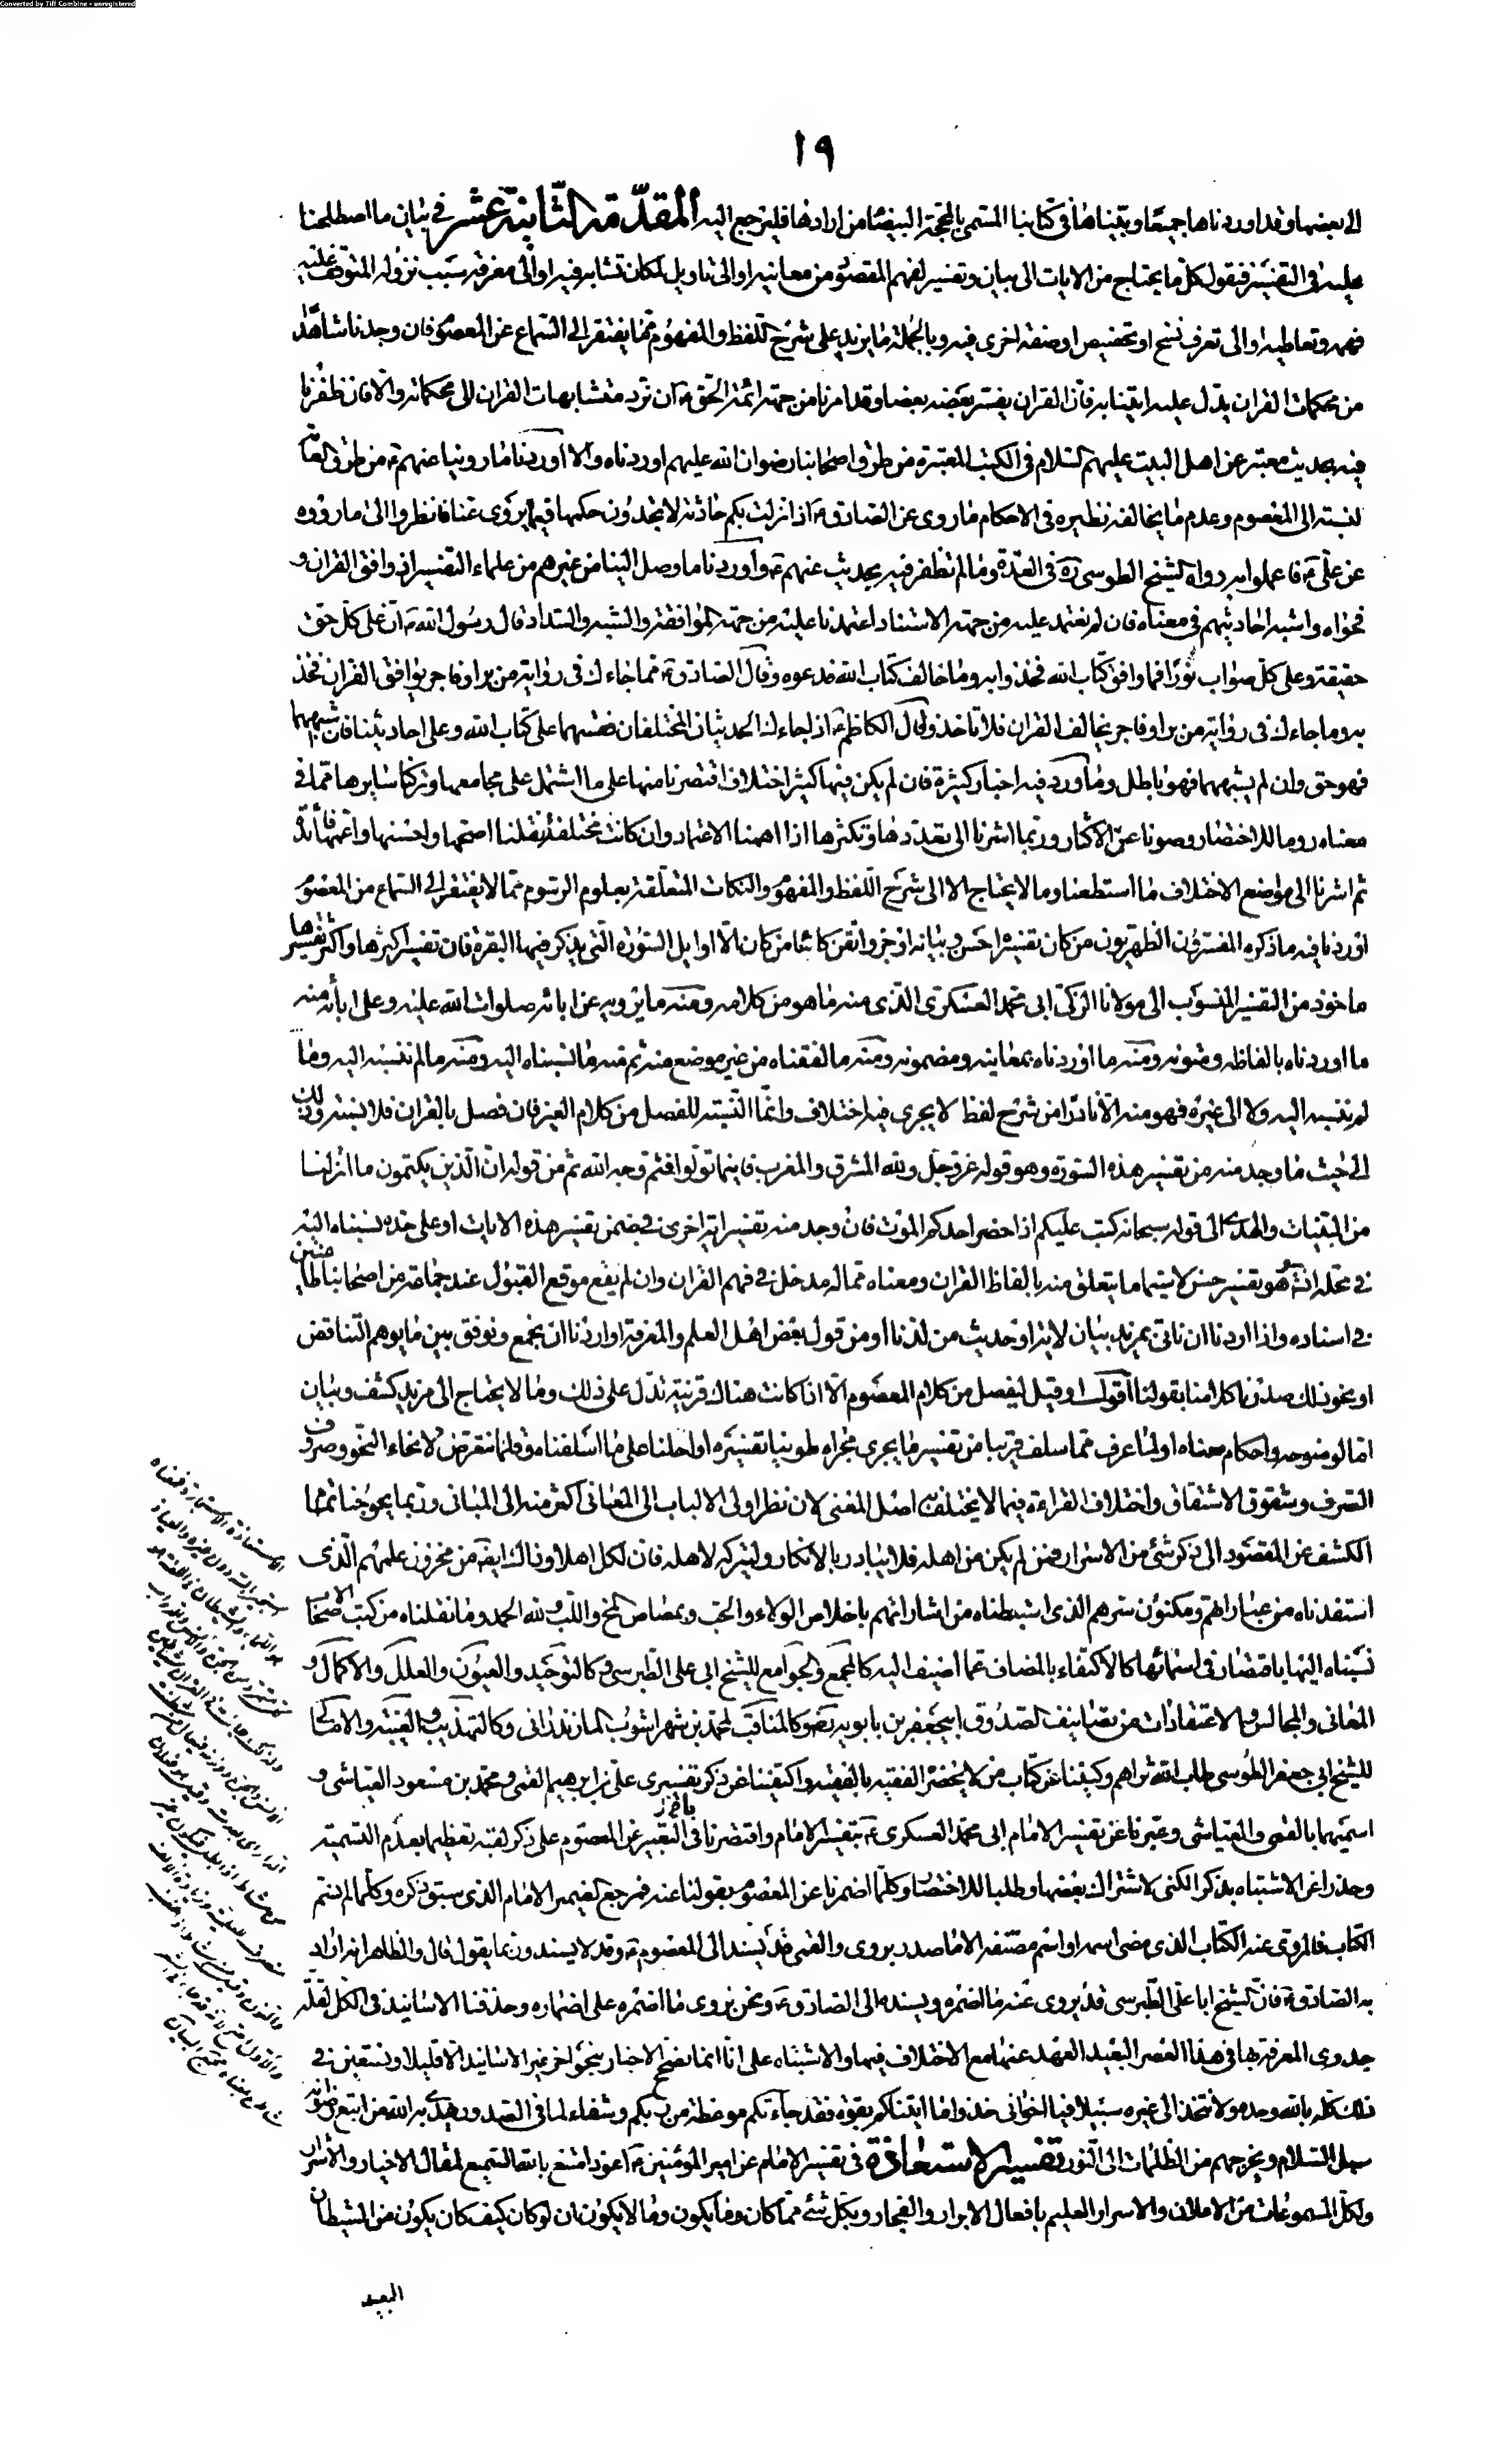 Converted by Tiff Combine - unregistered
١٩
الى بعضها وقد اوردناها جميعًا وبيّناها فى كتابنا المسمى بالمحجّة البيضاء من ارادها فليرجع اليه المقدّمة الثّانية عشر فى بيان ما اصطلحنا
عليه فى التفسير فنقول كلّ ما يحتاج من الايات الى بيان وتفسير لفهم المقصود من معانيه او الى تاويل لمكان تشابه فيه او الى معرفة سبب نزوله المتوقف عليه
فهمه وتعاطيه او الى تعرف نسخ او تخصيص او صفة اخرى فيه وبالجملة ما يزيد على شرح اللفظ والمفهوم ممّا يفتقر الى السّماع عن المعصوم فان وجدنا شاهدًا
من محكمات القران يدلّ عليه اتينا به فانّ القران يفسّر بعضه بعضا وقد امرنا من جهة ائمة الحقّ ع ان نردّ متشابهات القران الى محكماته والّا فان ظفرنا
فيه بحديث معتبر عن اهل البيت عليهم السّلام فى الكتب المعتبرة من طرق اصحابنا رضوان الله عليهم اوردناه والّا اوردنا ما روينا عنهم ع من طرق العامة
لنسبته الى المعصوم وعدم ما يخالفه نظيره فى الاحكام ما روى عن الصّادق ع اذا نزلت بكم حادثة لا تجدون حكمها فيما يروى عنّا فانظروا الى ما رووه
عن علىّ ع فاعملوا به رواه الشّيخ الطوسى ره فى العدّة وما لم نظفر فيه بحديث عنهم ع اوردنا ما وصل الينا من غيرهم من علماء التّفسير اذ وافق القران و
فحواه واشبه احاديثهم فى معناه فان لم نعتمد عليه من جهة الاستناد اعتمدنا عليه من جهة الموافقة والشبه والسّداد قال رسول الله ص ان على كلّ حقّ
حقيقة وعلى كلّ صواب نورًا فما وافق كتاب الله فخذوا به وما خالف كتاب الله فدعوه وقال الصّادق ع فما جاءك فى رواية من برّ او فاجر يوافق القران فخذ
به وما جاءك فى رواية من برّ او فاجر يخالف القران فلا تاخذ وقال الكاظم ع اذا جاءك الحديثان المختلفان فقسهما على كتاب الله وعلى احاديثنا فان شبههما
فهو حق وان لم يشبههما فهو باطل وما ورد فيه اخبار كثيرة فان لم يكن فيها كثير اختلاف اقتصرنا منها على ما اشتمل على مجامعها وتركنا سايرها ممّا فى
معناه روما للاختصار وصونا عن الاكثار وربّما اشرنا الى تعدّدها وتكثرها اذا اهمنا الاعتماد وان كانت مختلفة نقلنا اصحّها واحسنها واعمّها فائدة
ثم اشرنا الى مواضع الاختلاف ما استطعنا وما لا يحتاج الا الى شرح اللفظ والمفهوم والنكات المتعلّقة بعلوم الرسوم ممّا لا يفتقر الى السّماع من المعصوم
اوردنا فيه ما ذكره المفسّرون الظاهريون من كان تفسيره احسن وبيانه اوجز واتقن كائنا من كان الّا اوايل السّورة التى يذكر فيها البقرة فان تفسير اكثرها واكثر تفسيرها
ماخوذ من التفسير المنسوب الى مولانا الزكىّ ابى محمّد العسكرى الذى منه ما هو من كلامه ومنه ما يرويه عن ابائه صلوات الله عليه وعلى ابائه منه
ما اوردناه بالفاظه ومتونه ومنه ما اوردناه بمعانيه ومضمونه ومنه ما لفقناه من غير موضع منه ثم منه ما نسبناه اليه ومنه ما لم ننسبه اليه وما
لم ننسبه اليه ولا الى غيره فهو منه الّا نادرًا من شرح لفظ لا يجرى فيه اختلاف وانّما النّسبة للفصل من كلام الغير فان فصل بالقران فلا نسبة وذلك
الى حيث ما وجد منه من تفسير هذه السّورة وهو قوله عزّ وجلّ ولله المشرق والمغرب فاينما تولوا فثمّ وجه الله ثم من قوله انّ الّذين يكتمون ما انزلنا
من البيّنات والهدى الى قوله سبحانه كتب عليكم اذا حضر احدكم الموت فان وجد منه تفسير اية اخرى فى ضمن تفسير هذه الايات او على حدة نسبناه اليه
فى محلّه انّه هو تفسير حسن لا سيّما ما يتعلق منه بالفاظ القران ومعناه ممّا له مدخل فى فهم القران وان لم يقع موقع القبول عند جماعة من اصحابنا طاعنين
فى اسناده واذا اردنا ان ناتى بمزيد بيان لاية او حديث من لدنّا او من قول بعض اهل العلم والمعرفة او اردنا ان نجمع ونوفّق بين ما يوهم التّناقض
او نحو ذلك صدّرنا كلامنا بقولنا اقول او قيل ليفصل من كلام المعصوم الّا اذا كانت هناك قرينة تدلّ على ذلك وما لا يحتاج الى مزيد كشف وبيان
امّا لوضوحه واحكام معناه او لما عرف ممّا سلف قريبا من تفسير ما يجرى مجراه طوينا تفسيره او احلنا على ما اسلفناه وقلّما نتعرّض لانحاء النّحو وصروف
الصّرف وشقوق الاشتقاق واختلاف القراءة فيما لا يختلف به اصل المعنى لان نظر اولى الالباب الى المعانى اكثر منه الى المبانى وربّما يحوجنا تمام
الكشف عن المقصود الى ذكر شئ من الاسرار فمن لم يكن من اهله فلا يبادر بالانكار وليتركه لاهله فان لكل اهلا وذلك ايضا من مخزون علمهم الّذى
استفدناه من عباراتهم ومكنون سرّهم الذى استنبطناه من اشاراتهم باخلاص الولاء والحبّ وبمصاص المخّ واللّبّ ولله الحمد وما نقلناه من كتب الاصحاب
نسبناه اليها باقتصار فى اسمائها كالاكتفاء بالمضاف عمّا اضيف اليه كالمجمع والجوامع للشيخ ابى على الطبرسى وكالتوحيد والعيون والعلل والاكمال و
المعانى والمجالس والاعتقادات من تصانيف الصّدوق ابيجعفر بن بابويه وكالمناقب لمحمّد بن شهراشوب المازندرانى وكالتهذيب والغيبة والامالى
للشيخ ابى جعفر الطوسى طاب الله ثراهم وكنّينا عن كتاب من لا يحضره الفقيه بالفقيه واكتفينا عن ذكر تفسيرى علىّ بن ابرهيم القمى ومحمّد بن مسعود العيّاشى و
اسميهما بالقمى والعيّاشى وعبّرنا عن تفسير الامام ابى محمّد العسكرى ع بتفسير الامام واقتصرنا فى التعبير عن المعصوم على ذكر لقبه تعظيما بعدم التسمية
وحذرا عن الاشتباه بذكر الكنى لاشتراك بعضها وطلبا للاختصار وكلّما اضمرنا عن المعصوم بقولنا عنه فمرجع الضمير الامام الذى سبق ذكره وكلّما لم نسمّ
الكتاب فالمروىّ عنه الكتاب الذى مضى اسمه او اسم مصنّفه الا ما صدر بروى والقمى قد يسند الى المعصوم ع وقد لا يسند وربما يقول قال والظاهر انه اراد
به الصّادق ع فانّ الشيخ ابا علىّ الطّبرسى قد يروى عنه ما اضمره ويسنده الى الصّادق ع ونحن نروى ما اضمره على اضماره وحذفنا الاسانيد فى الكل لقلّة
جدوى المعرفة بها فى هذا العصر البعيد العهد عنها مع الاختلاف فيها والاشتباه على انا انما نصحّح الاخبار بنحو اخر غير الاسانيد الا قليلا ونستعين فى
ذلك كلّه بالله وحده ولا نتّخذ الى غيره سبيلا فيا اخوانى خذوا ما اتيناكم بقوة فقد جاءتكم موعظة من ربكم وشفاء لما فى الصّدور يهدى به الله من اتبع رضوانه
سبل السّلام ويخرجهم من الظلمات الى النّور تفسير الاستعاذة فى تفسير الامام عن امير المؤمنين ع اعوذ امتنع بالله السّميع لمقال الاخيار والاشرار
ولكلّ المسموعات من الاعلان والاسرار العليم بافعال الابرار والفجار وبكلّ شئ ممّا كان وما يكون وما لا يكون ان لو كان كيف كان يكون من الشيطان
البعيد